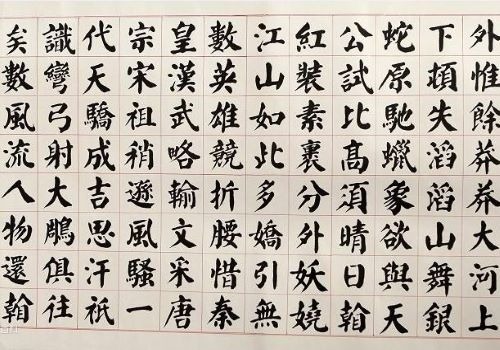 外惟餘莽莽大河上
下頓失滔滔山舞銀
蛇原馳蠟象欲與天
公試比高須晴日翰
紅裝素裹分外妖嬈
江山如此多嬌引無
數英雄競折腰惜秦
皇漢武略輸文采唐
宗宋祖稍遜風騷一
代天驕成吉思汗祇
識彎弓射大鵰俱往
矣數風流人物還翰